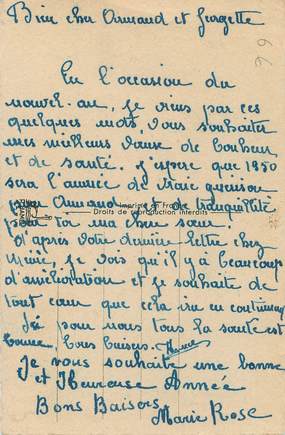 Bien cher Armand et Georgette
En l'occasion du
nouvel-an, je viens par ces
quelques mots, vous souhaiter
mes meilleurs vœux de bonheur
et de santé. J'espère que 1950
sera l'année de vraie guérison
pour Armand et de tranquillité
Imprimé en France
Droits de reproduction interdits
pour toi ma chère sœur.
D'après votre dernière lettre chez
Mimi, je vois qu'il y a beaucoup
d'amélioration et je souhaite de
tout cœur que cela ira en continuant
Ici pour nous tous la santé est
bonne. Bons baisers.
Je vous souhaite une bonne
et Heureuse Année
Bons Baisers
Marie Rose